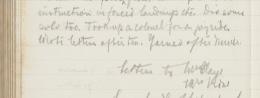 instruction in forced landings etc. Did some
solo too. Took up a colonel for a joyride.
Wrote letters after tea. Yarned after dinner.
letters to Mrs Hays
Mrs